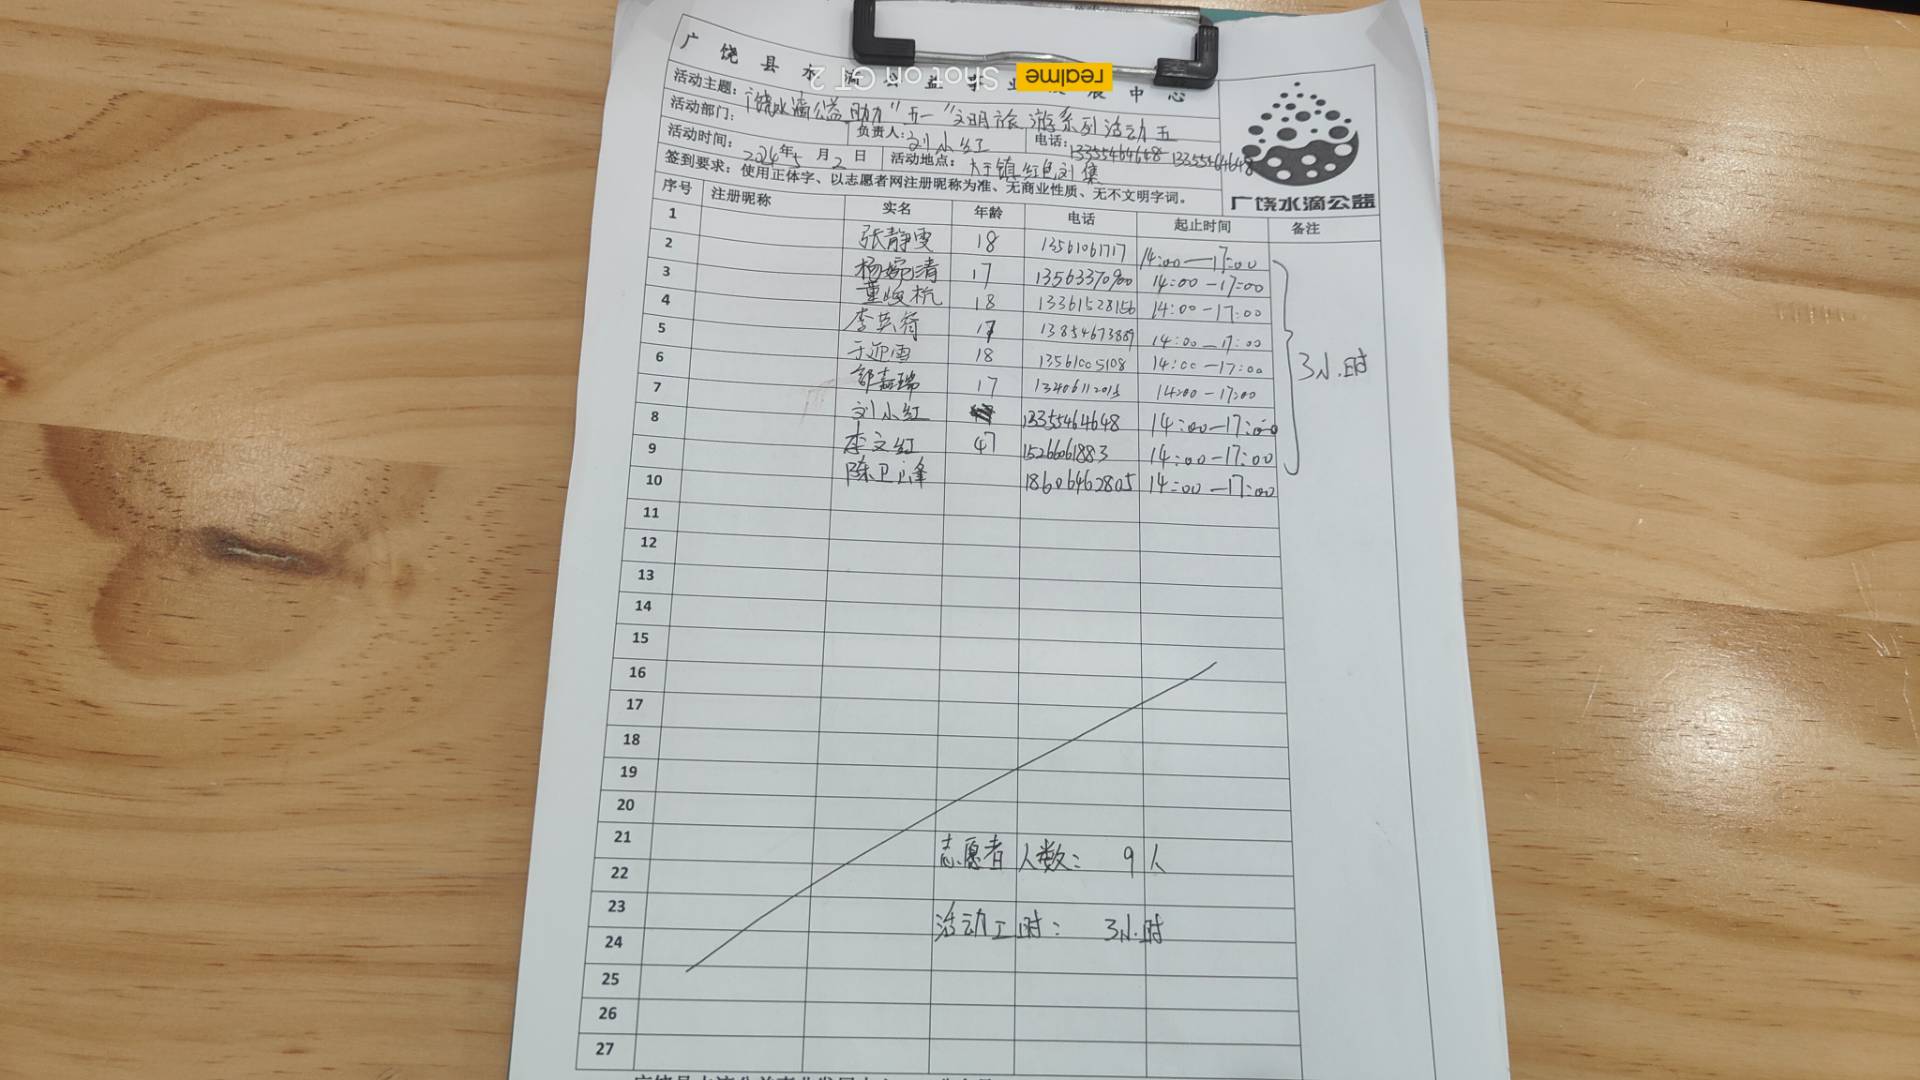 广饶县水滴公益事业发展中心
活动主题：广饶水滴公益助力"五一"文明旅游系列活动五
活动部门： 负责人：刘小红 电话：13355464648 13355464648
活动时间：2024年5月2日 活动地点：大王镇红色刘集
签到要求：使用正体字、以志愿者网注册昵称为准、无商业性质、无不文明字词。
广饶水滴公益
序号 注册昵称 实名 年龄 电话 起止时间 备注
1 张静雯 18 13561061717 14:00—17:00
2 杨婉清 17 13563370900 14:00-17:00
3 董峻杭 18 13361528156 14:00-17:00
4 李英荷 17 13854673889 14:00—17:00
5 于迎雪 18 13561005108 14:00-17:00
6 邵嘉瑞 17 14:00-17:00
7 刘小红 13355464648 14:00-17:00
8 李文红 47 15266061883 14:00-17:00
9 陈卫峰 18606462805 14:00-17:00
3小时
10
11
12
13
14
15
16
17
18
19
20
21
志愿者人数：9人
22
23
活动工时：3小时
24
25
26
27
realme Shot on GT 2